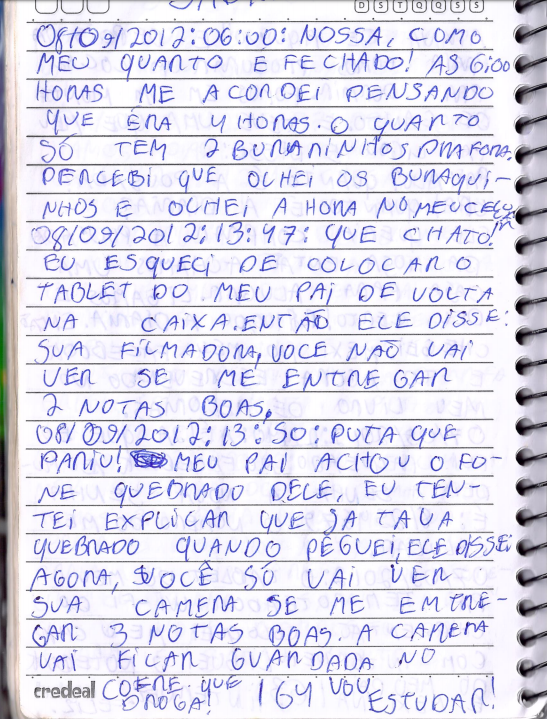 D S T Q Q S S
08/09/2012:06:00: NOSSA, COMO
MEU QUARTO É FECHADO! AS 6:00
HORAS ME ACORDEI PENSANDO
QUE ERA 4 HORAS. O QUARTO
SÓ TEM 2 BURARINHOS PRA FORA.
PERCEBI QUE OLHEI OS BURAQUI-
NHOS E OLHEI A HORA NO MEU CELU
08/09/2012:13:47: QUE CHATO!
EU ESQUECI DE COLOCAR O
TABLET DO MEU PAI DE VOLTA
NA CAIXA. ENTÃO ELE DISSE:
SUA FILMADORA, VOCE NÃO VAI
VER SE ME ENTREGAR
2 NOTAS BOAS.
08/09/2012:13:50: PUTA QUE
PARIU! MEU PAI ACHOU O FO-
NE QUEBRADO DELE. EU TEN-
TEI EXPLICAR QUE JA TAVA
QUEBRADO QUANDO PEGUEI, ELE DISSE:
AGORA, VOCÊ SÓ VAI VER
SUA CAMERA SE ME EMTRE-
GAR 3 NOTAS BOAS. A CAMERA
VAI FICAR GUARDADA NO
COFRE QUE
DROGA! VOU
ESTUDAR!
credeal